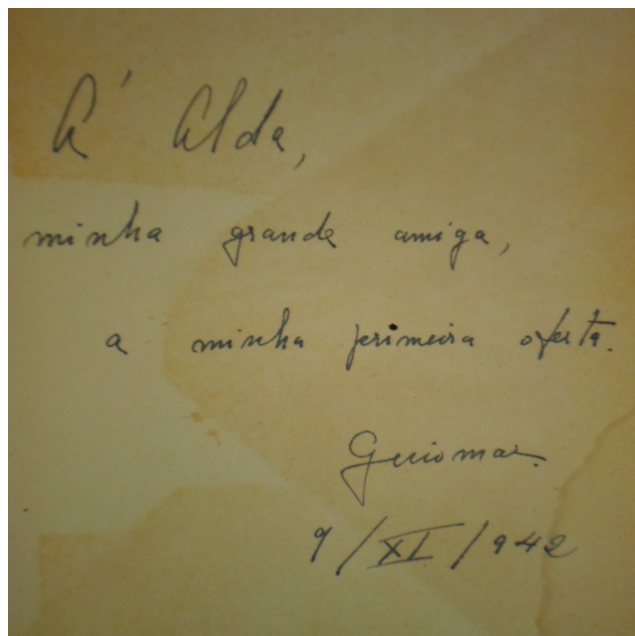 A' Alda,
minha grande amiga,
a minha primeira oferta.
Guiomar.
9/XI/942